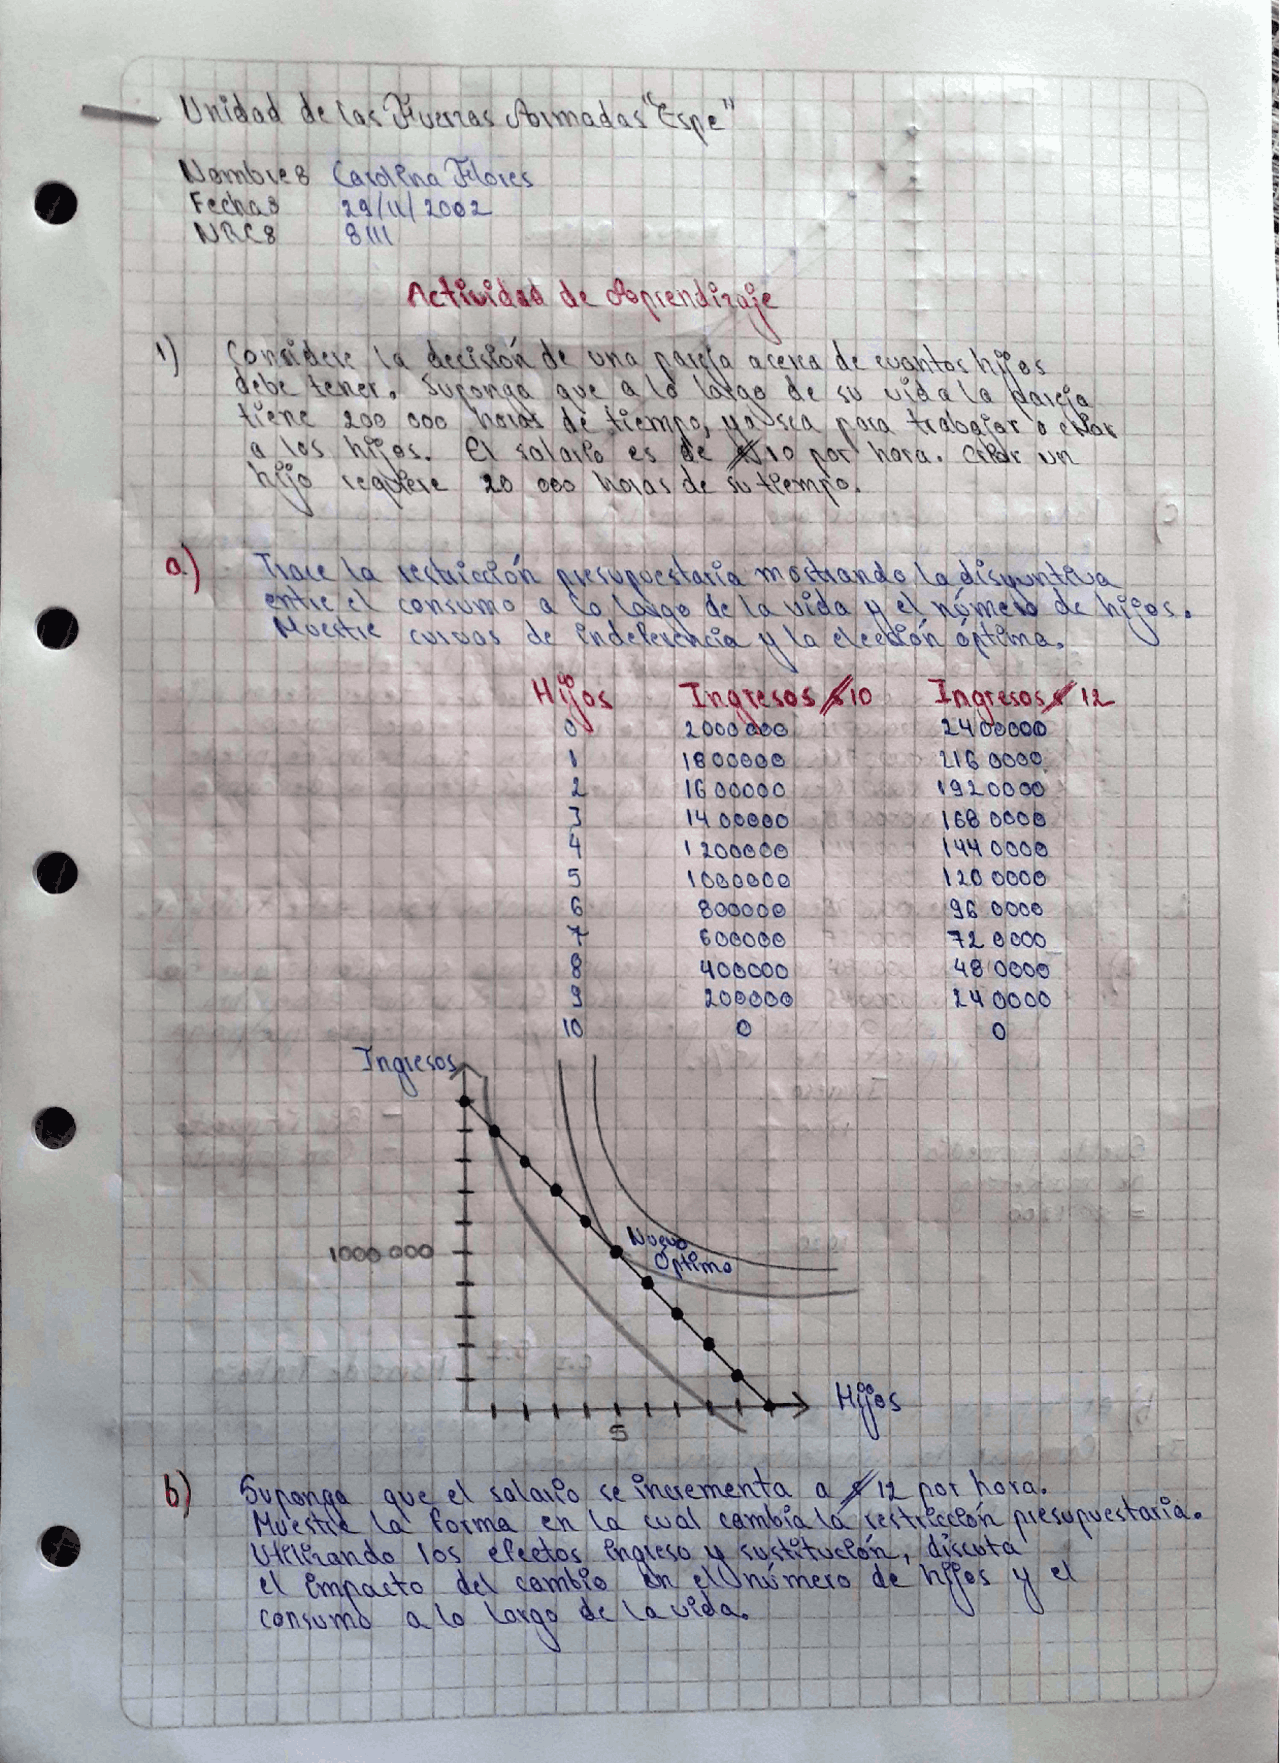 Unidad de las Fuerzas Armadas "Espe"
Nombre: Carolina Flores
Fecha: 29/11/2002
NRC: 8111
Actividad de Aprendizaje
1) Considere la decisión de una pareja acerca de cuantos hijos
debe tener. Suponga que a lo largo de su vida la pareja
tiene 200 000 horas de tiempo, ya sea para trabajar o criar
a los hijos. El salario es de $10 por hora. Criar un
hijo requiere 20 000 horas de su tiempo.
a) Trace la restricción presupuestaria mostrando la disyuntiva
entre el consumo a lo largo de la vida y el número de hijos.
Muestre curvas de indeferencia y la elección óptima.
Hijos Ingresos $10 Ingresos $12
0 2000000 2400000
1 1800000 2160000
2 1600000 1920000
3 1400000 1680000
4 1200000 1440000
5 1000000 1200000
6 800000 960000
7 600000 720000
8 400000 480000
9 200000 240000
10 0 0
Ingresos
1000.000
Nuevo
Óptimo
Hijos
5
b) Suponga que el salario se incrementa a $12 por hora.
Muestre la forma en la cual cambia la restricción presupuestaria.
Utilizando los efectos ingreso y sustitución, discuta
el impacto del cambio en el número de hijos y el
consumo a lo largo de la vida.